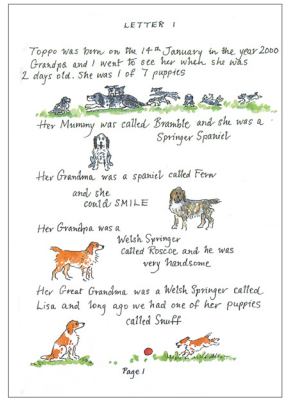 LETTER 1
Toppo was born on the 14th January in the year 2000
Grandpa and I went to see her when she was
2 days old. She was 1 of 7 puppies
Her Mummy was called Bramble and she was a
Springer Spaniel
Her Grandma was a spaniel called Fern
and she
could SMILE
Her Grandpa was a
Welsh Springer
called Roscoe and he was
very handsome
Her Great Grandma was a Welsh Springer called
Lisa and long ago we had one of her puppies
called Snuff
Page 1